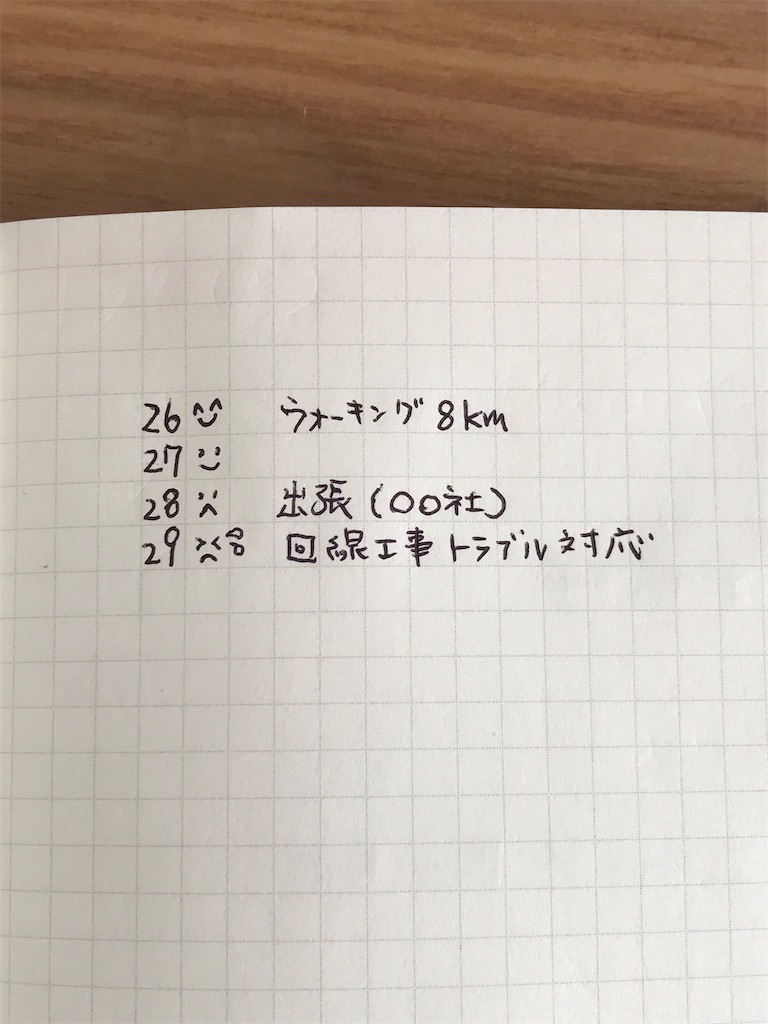 26 ウォーキング 8km
27
28 出張(〇〇社)
29 回線工事トラブル対応